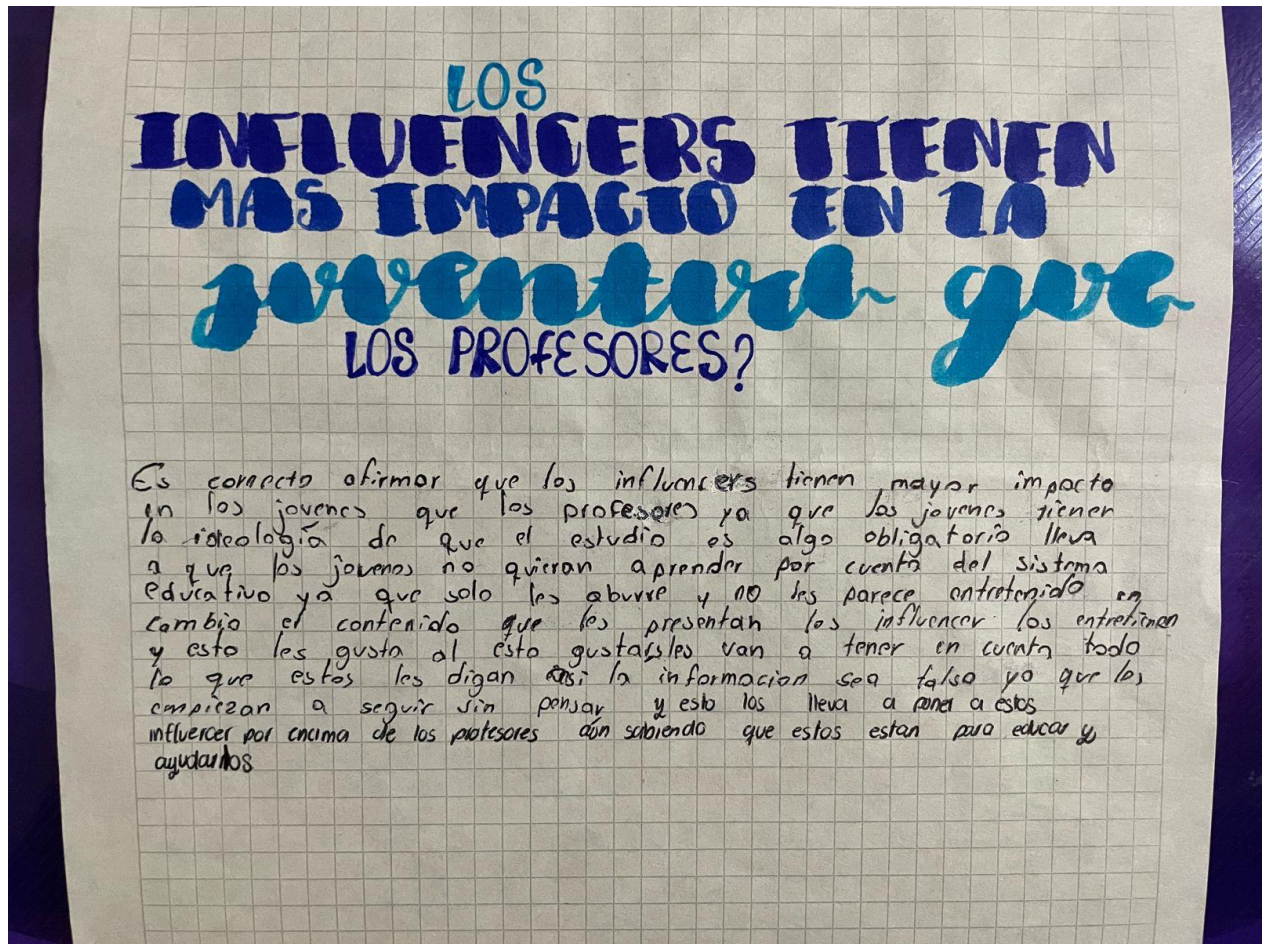 LOS
INFLUENCERS TIENEN
MAS IMPACTO EN LA
juventud que
LOS PROFESORES?
Es correcto afirmar que los influencers tienen mayor impacto
en los jovenes que los profesores ya que los jovenes tienen
la ideología de que el estudio es algo obligatorio lleva
a que los jovenes no quieran aprender por cuenta del sistema
educativo ya que solo les aburre y no les parece entretenido en
cambio el contenido que les presentan los influencer los entretienen
y esto les gusta al esto gustarles van a tener en cuenta todo
lo que estos les digan asi la informacion sea falsa ya que los
empiezan a seguir sin pensar y esto los lleva a poner a estos
influencer por encima de los profesores aún sabiendo que estos estan para educar y
ayudarlos